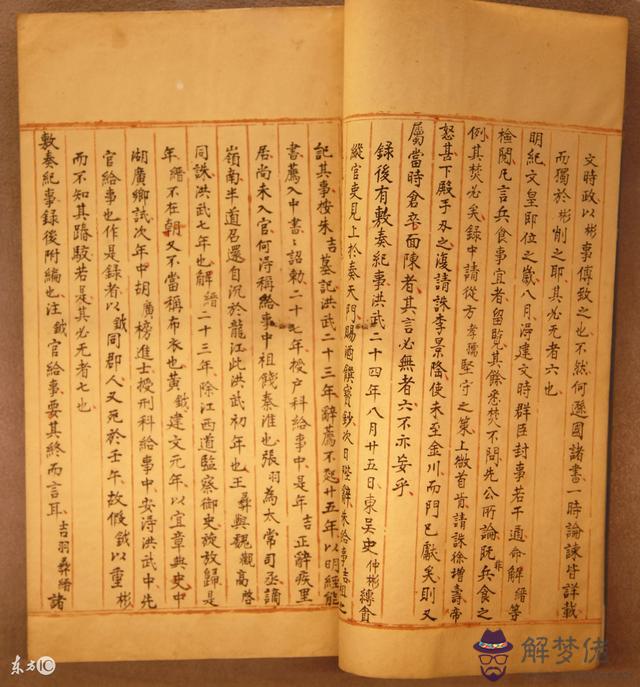 文時政以彬事傅致之也不然何遜國諸書一時論諫皆詳載
而獨於彬削之耶其必无者六也
明紀文皇即位之歲八月淂建文時群臣封事若干通命解縉等
檢閱凡言兵食事宜者留覧其餘悉焚不問先公所論既非兵食之
例其焚必矣録中請從方孝孺堅守之策上徴首肯請誅徐增壽帝
怒甚下殿手刃之復請誅李景隆使未至金川而門已獻矣則又
屬當時倉卒面陳者其言必無者六不亦妄乎
録後有敷奏紀事洪武二十四年八月廿五日東吴史仲彬縛貪
縱官吏見上於奏天門賜酒饌寳鈔次日陛辭朱給事吉祖之
記其事按朱吉墓記洪武二十三年辭薦不起廿五年以明經能
書薦入中書〻詔勅二十七年授户科給事中是年吉正辭疾里
居尚未入官何淂稱給事中祖餞秦淮也張羽為太常司丞謫
嶺南半道召還自沉於龍江此洪武初年也王彞與魏觀高啓
同誅洪武七年也解縉二十三年除江西道監察御史旋放歸是
年縉不在朝又不當稱布衣也黄鉞建文元年以宜章典史中
湖廣鄉試次年中胡廣榜進士授刑科給事中安淂洪武中先
官給事也作是録者以鉞同郡人又死於壬午故假鉞以重彬
而不知其踳駮若是其必无者七也
敷奏紀事録後附編也注鉞官給事要其終而言耳吉羽彞縉諸
解梦佬
东方IC